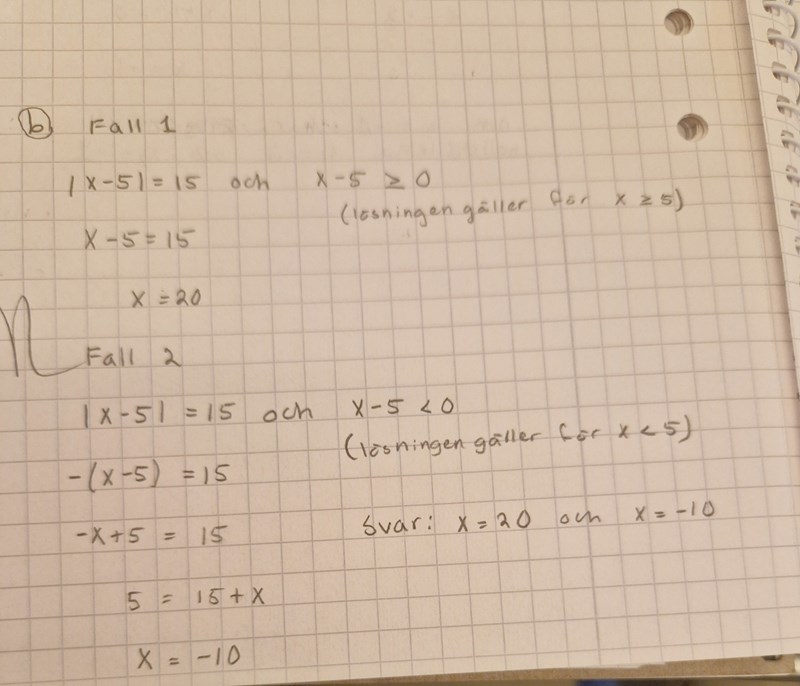 b) Fall 1
|x-5| = 15 och x-5 ≥ 0
(lösningen gäller för x ≥ 5)
x-5 = 15
x = 20
Fall 2
|x-5| = 15 och x-5 < 0
(lösningen gäller för x < 5)
-(x-5) = 15
-x+5 = 15
Svar: x = 20 och x = -10
5 = 15+x
x = -10